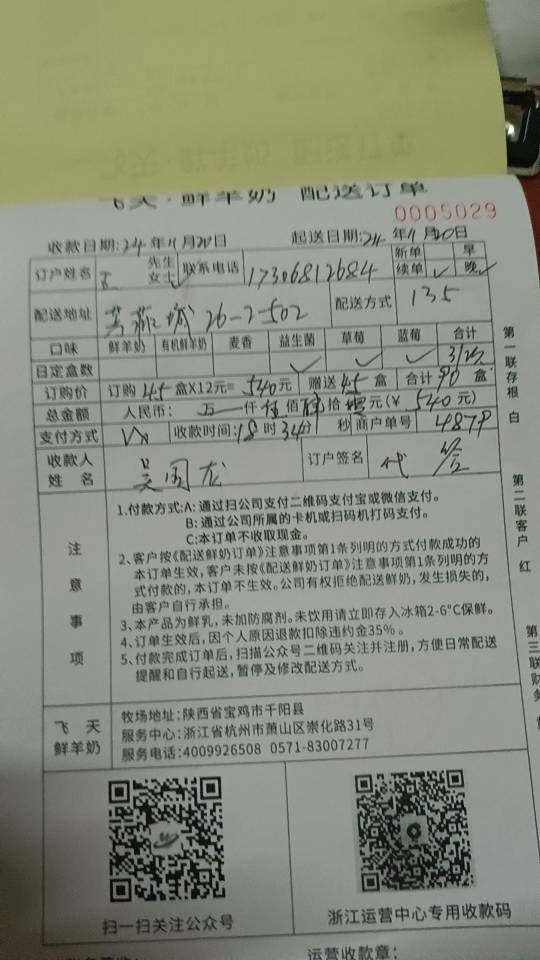 飞天·鲜羊奶 配送订单
0005029
收款日期:24年11月20日 起送日期:24年11月20日
订户姓名 王 先生 女士✓ 联系电话 17306812684 新单 续单✓ 早 晚✓
配送地址 26-2-502 配送方式 135
口味 鲜羊奶 有机鲜羊奶 麦香 益生菌 草莓 蓝莓 合计
日定盒数 ✓ ✓ ✓
订购价 订购45盒X12元=540元 赠送45盒 合计90盒
总金额 人民币: 万 仟伍佰肆拾元(¥ 540元)
支付方式 收款时间:18时34分 秒 商户单号 4879
收款人姓名 吴国龙 订户签名 代
注意事项
1.付款方式:A:通过扫公司支付二维码支付宝或微信支付。
B:通过公司所属的卡机或扫码机打码支付。
C:本订单不收取现金。
2、客户按《配送鲜奶订单》注意事项第1条列明的方式付款成功的
本订单生效，客户未按《配送鲜奶订单》注意事项第1条列明的方
式付款的，本订单不生效。公司有权拒绝配送鲜奶，发生损失的，
由客户自行承担。
3、本产品为鲜乳，未加防腐剂。未饮用请立即存入冰箱2-6°C保鲜。
4、订单生效后，因个人原因退款扣除违约金35%。
5、付款完成订单后，扫描公众号二维码关注并注册，方便日常配送
提醒和自行起送，暂停及修改配送方式。
飞天鲜羊奶
牧场地址:陕西省宝鸡市千阳县
服务中心:浙江省杭州市萧山区崇化路31号
服务电话:4009926508 0571-83007277
扫一扫关注公众号 浙江运营中心专用收款码
运营收款章:
第一联存根 白
第二联客户 红
第三联财务